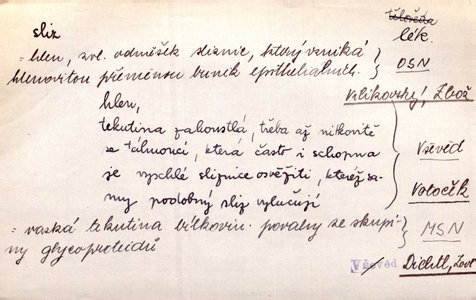 sliz
tělověda
lék.
= hlen, zvl. odměšek sliznic, který vzniká
hlenovitou přeměnou buněk epitheliálních. } OSN
Velikovský, Zbož
hlen,
tekutina zahoustlá, třeba až nitkovitě
se táhnoucí, která často i schopna
je vyschlé sliznice osvěžiti, kteréž sa-
my podobný sliz vylučují
Vševěd
Votoček
= vazká tekutina bílkovin. povahy ze skupi-
ny glycoproteidů } MSN
Všověd Dichtl,